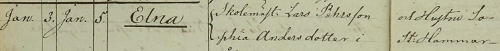 Jan. 3. Jan. 5. Elna Skolemäst. Lars Pehrsson och Hustru So-
phia Andersdotter i St. Hammar